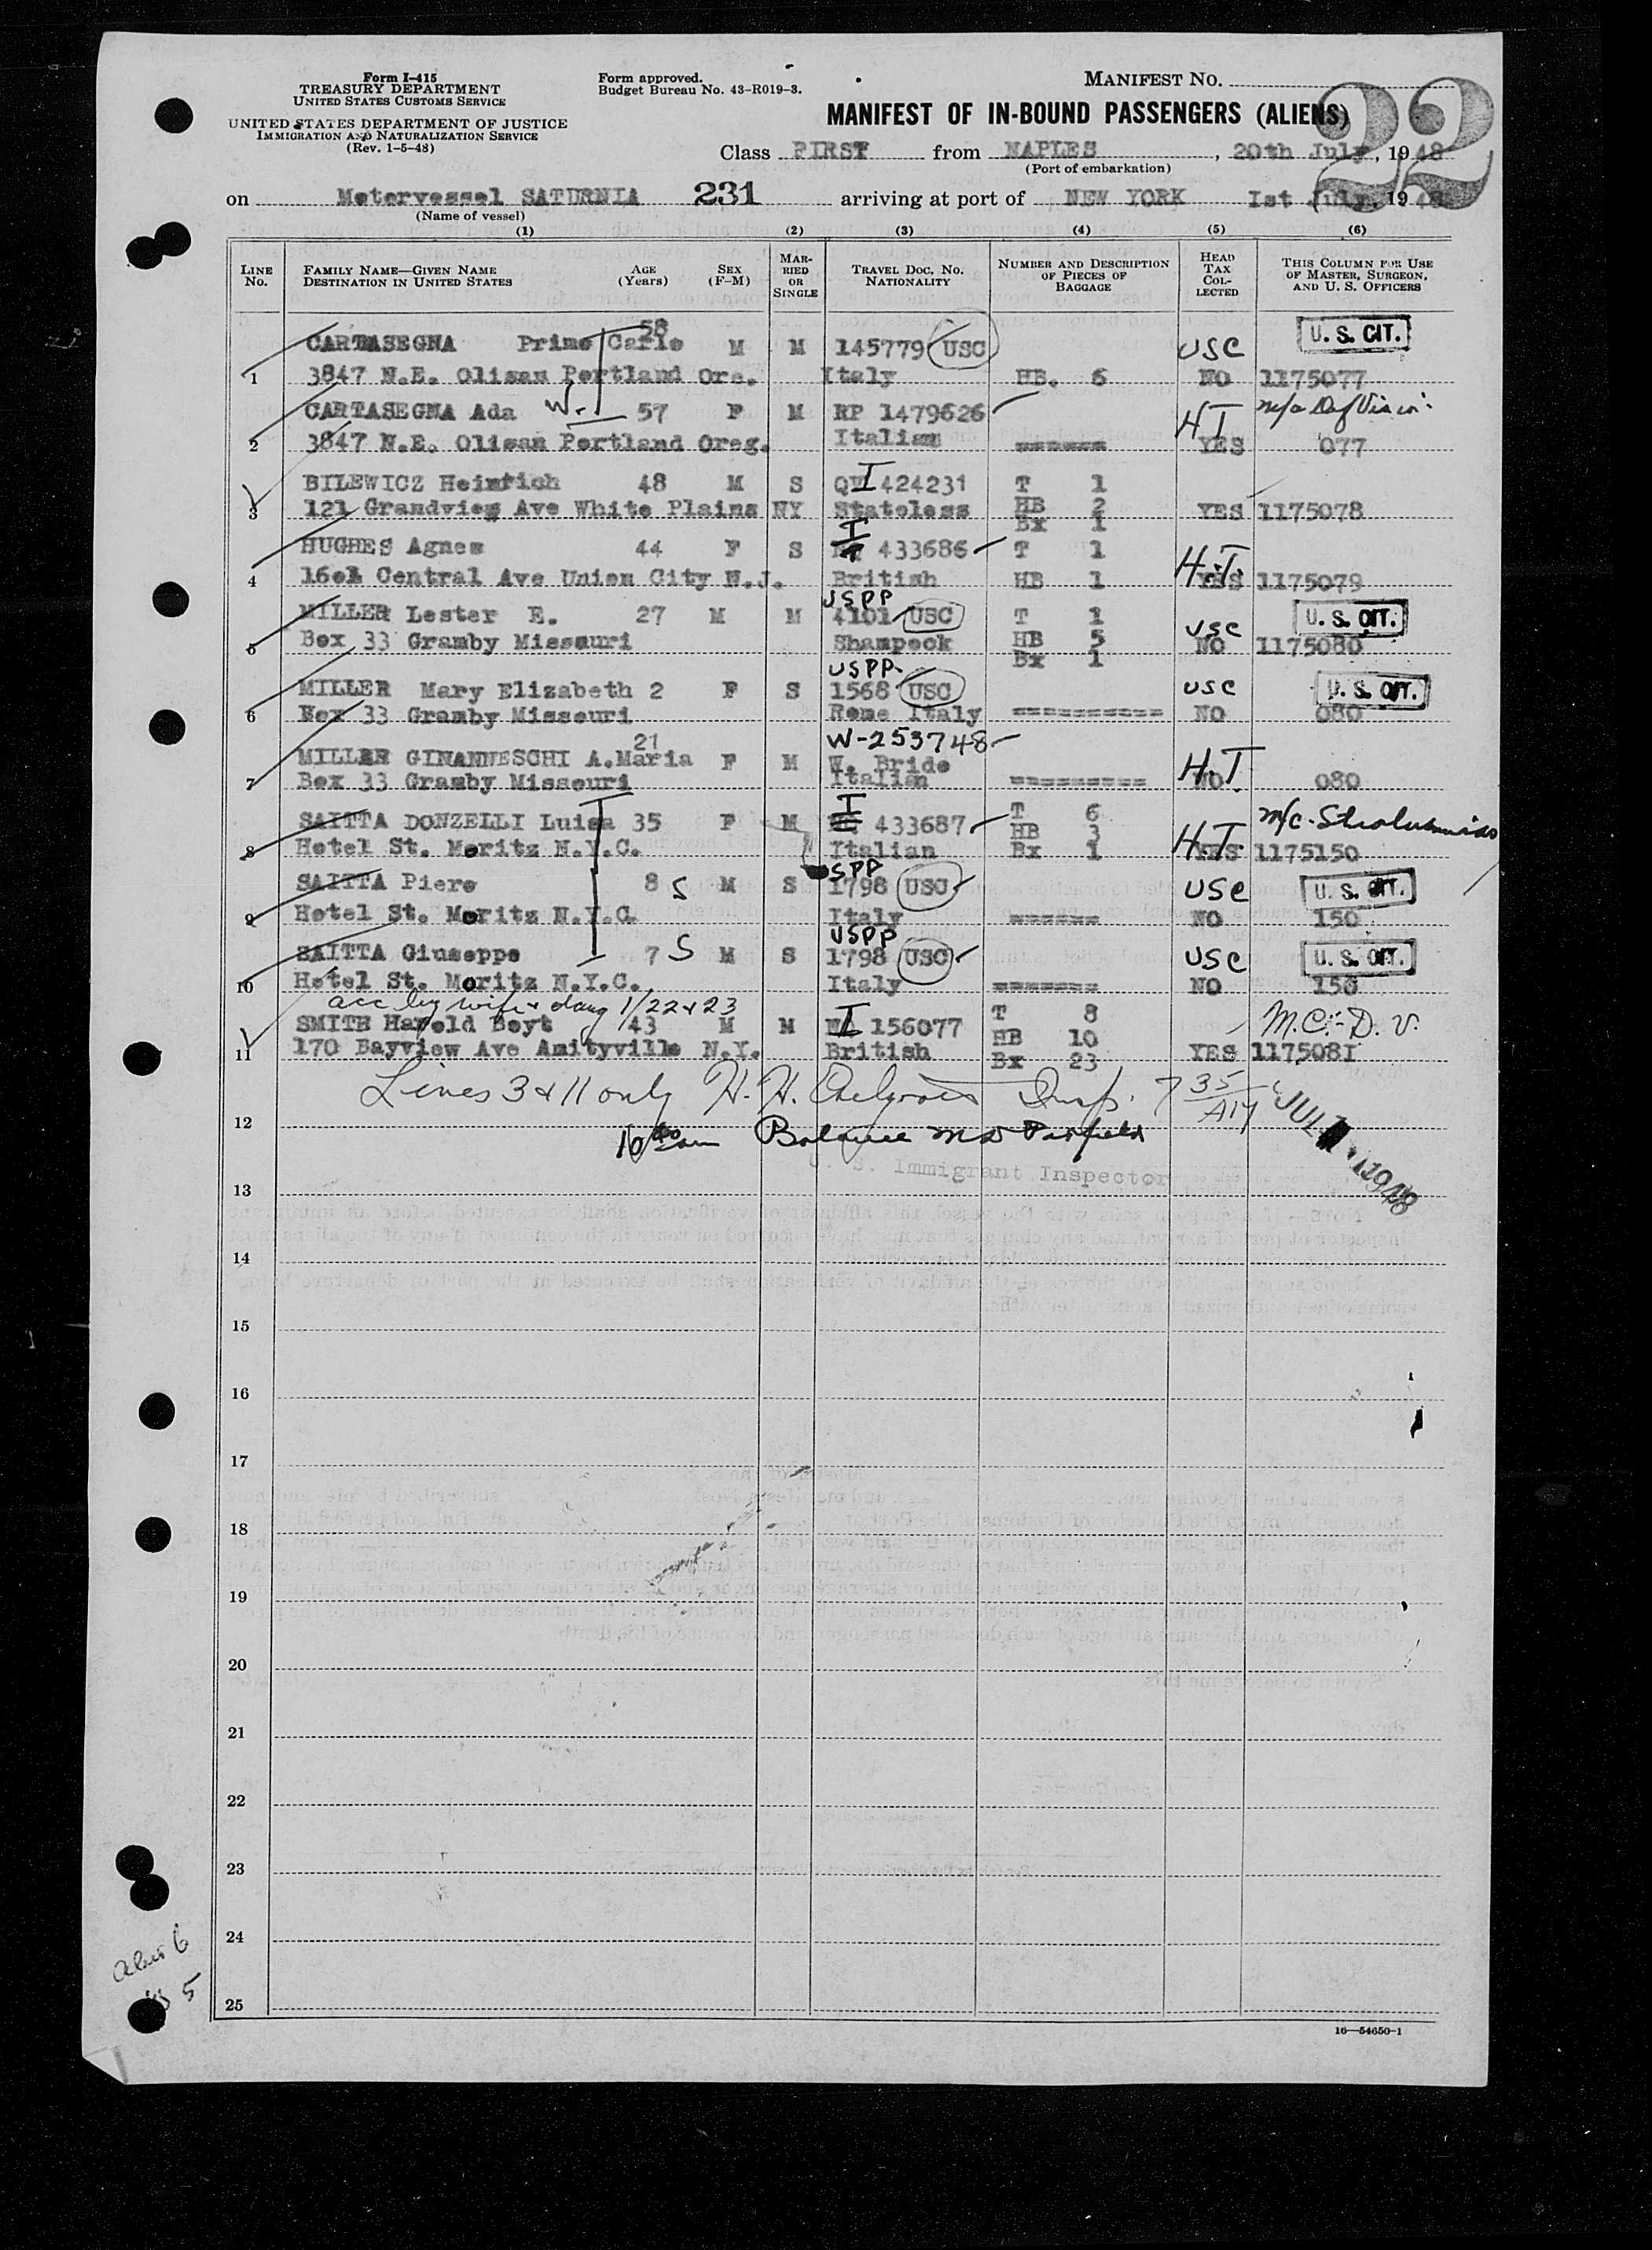 Form I-415
TREASURY DEPARTMENT
UNITED STATES CUSTOMS SERVICE
UNITED STATES DEPARTMENT OF JUSTICE
IMMIGRATION AND NATURALIZATION SERVICE
(Rev. 1-5-48)
Form approved.
Budget Bureau No. 43-R019-3.
MANIFEST NO.
22
MANIFEST OF IN-BOUND PASSENGERS (ALIENS)
Class FIRST from NAPLES, 20th July, 1948
(Port of embarkation)
on Motorvessel SATURNIA 231 arriving at port of NEW YORK 1st July, 1948
(Name of vessel)
(1) (2) (3) (4) (5) (6)
LINE No. FAMILY NAME—GIVEN NAME DESTINATION IN UNITED STATES AGE (Years) SEX (F-M) MARRIED OR SINGLE TRAVEL DOC. No. NATIONALITY NUMBER AND DESCRIPTION OF PIECES OF BAGGAGE HEAD TAX COLLECTED THIS COLUMN FOR USE OF MASTER, SURGEON, AND U. S. OFFICERS
CARTASEGNA Primo Carlo 58 M M 145779 USC USC U. S. CIT.
1 3847 N.E. Olisan Portland Ore. Italy HB. 6 NO 1175077
CARTASEGNA Ada W. 57 F M RP 1479626 HT
2 3847 N.E. Olisan Portland Oreg. Italian ====== YES 077
BILEWICZ Heinrich 48 M S I 424231 T 1
3 121 Grandview Ave White Plains NY Stateless HB 2 YES 1175078
Bx 1
HUGHES Agnes 44 F S I 433686 T 1 H.T.
4 Central Ave Union City N.J. British HB 1 YES 1175079
USPP
MILLER Lester E. 27 M M 4101 USC T 1 USC U. S. CIT.
5 Box 33 Gramby Missouri Shampock HB 5 NO 1175080
Bx 1
USPP
MILLER Mary Elizabeth 2 F S 1568 USC USC U. S. CIT.
6 Box 33 Gramby Missouri Rome Italy ========== NO 080
21 W-253748
MILLER GINANNESCHI A.Maria F M W. Bride H.T.
7 Box 33 Gramby Missouri Italian ========= NO 080
SAITTA DONZELLI Luisa 35 F M I 433687 T 6 HB 3 M/C.
8 Hotel St. Moritz N.Y.C. Italian Bx 1 H.T. YES 1175150
SPP
SAITTA Piero 8 S M S 1798 USC USC U. S. CIT.
9 Hotel St. Moritz N.Y.C. Italy ====== NO 150
USPP
SAITTA Giuseppe 7 S M S 1798 USC USC U. S. CIT.
10 Hotel St. Moritz N.Y.C. Italy ======= NO 150
acc by wife & daug 1/22 & 23
SMITH Harold Boyt 43 M M I 156077 T 8 HB 10 M.C.- D. V.
11 170 Bayview Ave Amityville N.Y. British Bx 23 YES 1175081
Lines 3 & 11 only H. H. Insp. 7 35 AM JUL 1 1948
12
10 40 am Balance
U. S. Immigrant Inspector
13
14
15
16
17
18
19
20
21
22
23
24
25
alien 6
5
16—54650-1